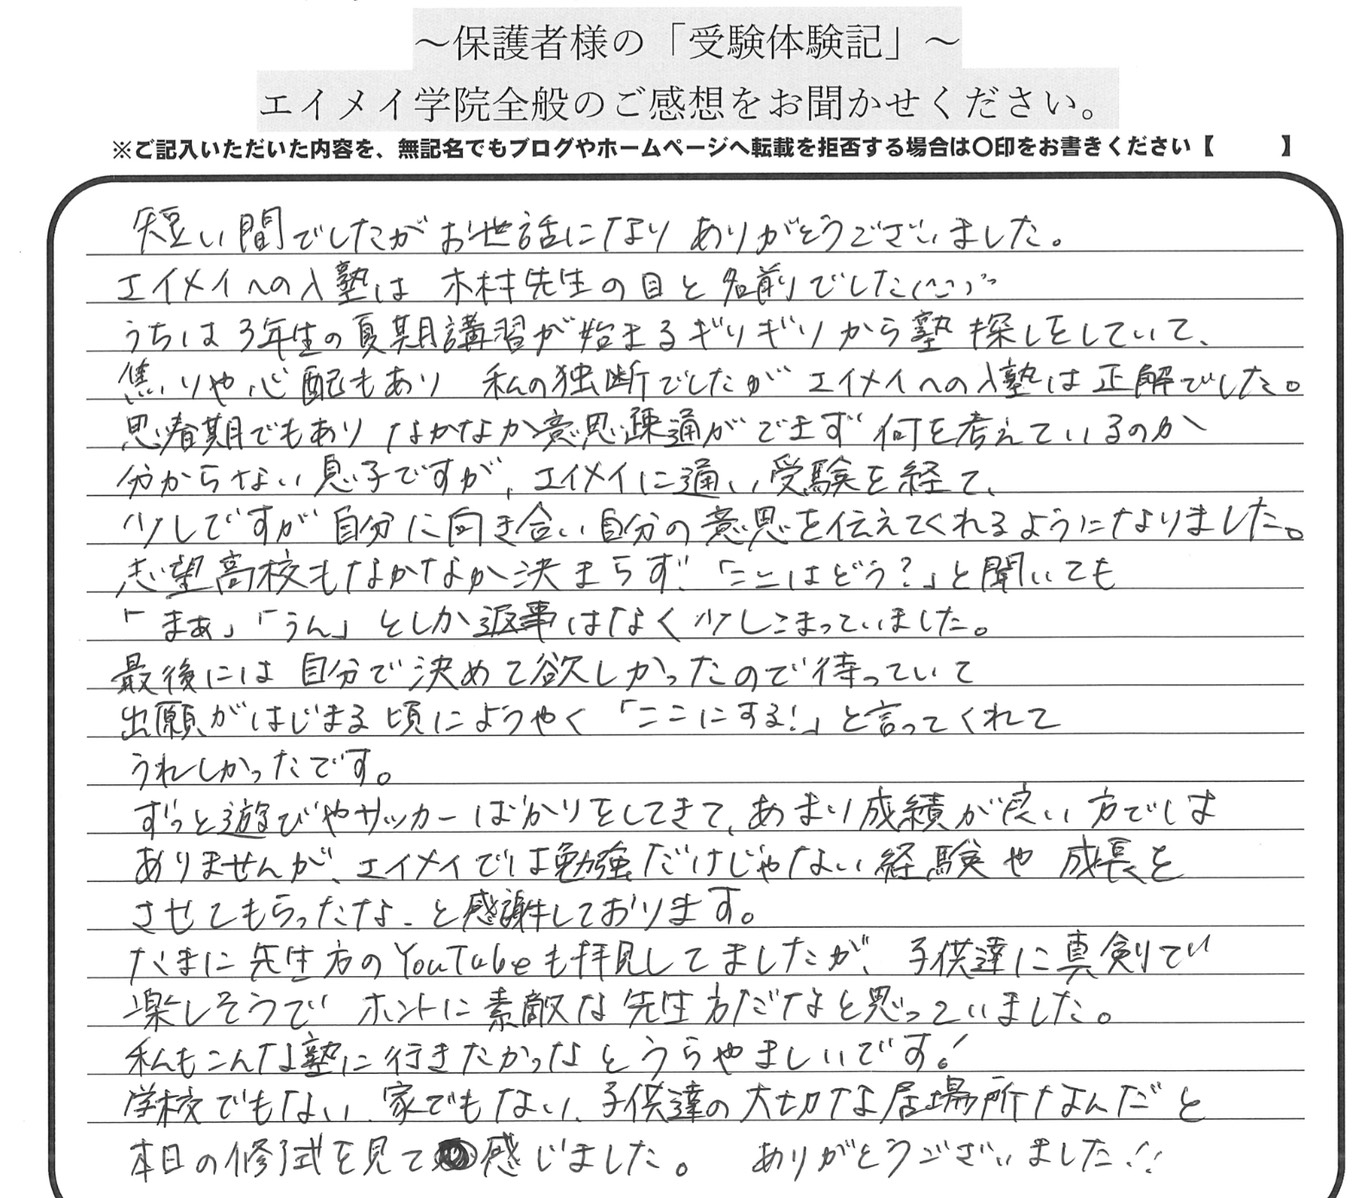 ～保護者様の「受験体験記」～
エイメイ学院全般のご感想をお聞かせください。
※ご記入いただいた内容を、無記名でもブログやホームページへ転載を拒否する場合は〇印をお書きください【　　　】
短い間でしたがお世話になり ありがとうございました。
エイメイへの入塾は 木村先生の目と名前でした(^^;)
うちは3年生の夏期講習が始まるギリギリから塾探しをしていて、
焦りや心配もあり 私の独断でしたが エイメイへの入塾は正解でした。
思春期でもあり なかなか意思疎通ができず 何を考えているのか
分からない息子ですが、エイメイに通い受験を経て、
少しですが自分に向き合い自分の意思を伝えてくれるようになりました。
志望高校もなかなか決まらず、「ここはどう？」と聞いても
「まぁ」「うん」としか返事はなく少しこまっていました。
最後には自分で決めて欲しかったので待っていて
出願がはじまる頃にようやく「ここにする！」と言ってくれて
うれしかったです。
ずっと遊びやサッカーばかりをしてきて、あまり成績が良い方では
ありませんが、エイメイでは勉強だけじゃない経験や 成長を
させてもらったな、と感謝しております。
たまに先生方のYouTubeも拝見してましたが、子供達に真剣で
楽しそうで ホントに素敵な先生方だなと思っていました。
私もこんな塾に行きたかったなとうらやましいです！
学校でもない、家でもない、子供達の大切な居場所なんだと
本日の修了式を見て感じました。 ありがとうございました!!